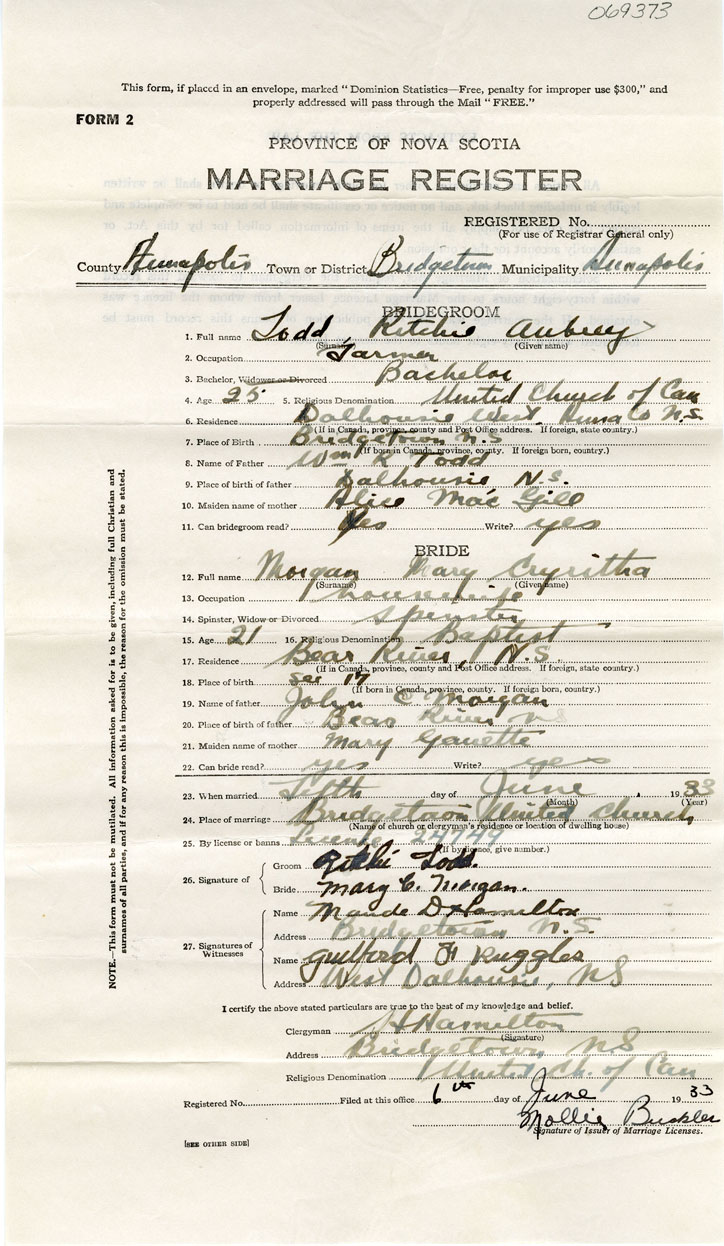 069373
This form, if placed in an envelope, marked "Dominion Statistics—Free, penalty for improper use $300," and
properly addressed will pass through the Mail "FREE."
FORM 2
PROVINCE OF NOVA SCOTIA
MARRIAGE REGISTER
REGISTERED No.
(For use of Registrar General only)
County Annapolis Town or District Bridgetown Municipality Annapolis
BRIDEGROOM
1. Full name Todd Ritchie Aubrey
(Surname) (Given name)
2. Occupation Farmer
3. Bachelor, Widower or Divorced Bachelor
4. Age 25 5. Religious Denomination United Church of Can
6. Residence Dalhousie West Anna Co N.S.
(If in Canada, province, county and Post Office address. If foreign, state country.)
7. Place of Birth Bridgetown N.S
(If born in Canada, province, county. If foreign born, country.)
8. Name of Father Wm R Todd
9. Place of birth of father Dalhousie N.S.
10. Maiden name of mother Alice Mac Gill
11. Can bridegroom read? Yes Write? yes
BRIDE
12. Full name Morgan Mary
(Surname) (Given name)
13. Occupation housewife
14. Spinster, Widow or Divorced Spinster
15. Age 21 16. Religious Denomination Baptist
17. Residence Bear River, N.S.
(If in Canada, province, county and Post Office address. If foreign, state country.)
18. Place of birth see 17
(If born in Canada, province, county. If foreign born, country.)
19. Name of father John C Morgan
20. Place of birth of father Bear River NS
21. Maiden name of mother Mary
22. Can bride read? yes Write? yes
23. When married Fifth day of June 1933
(Month) (Year)
24. Place of marriage Bridgetown United Church
(Name of church or clergyman's residence or location of dwelling house)
25. By license or banns License
(If by license, give number.)
26. Signature of
Groom Ritchie Todd.
Bride Mary C. Morgan.
27. Signatures of Witnesses
Name Maude D Hamilton
Address Bridgetown N.S.
Name Guilford F Ruggles
Address West Dalhousie, NS
I certify the above stated particulars are true to the best of my knowledge and belief.
Clergyman Hamilton
(Signature)
Address Bridgetown, NS
Religious Denomination United Ch. of Can
Registered No. Filed at this office 6th day of June 1933
Mollie Buckler
Signature of Issuer of Marriage Licenses.
[SEE OTHER SIDE]
NOTE.—This form must not be mutilated. All information asked for is to be given, including full Christian and
surnames of all parties, and if for any reason this is impossible, the reason for the omission must be stated.